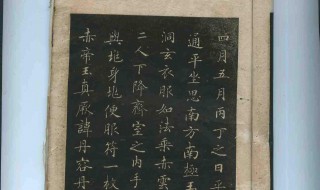 四月五月丙丁之日平
通平坐思南方南極玉
洞玄衣服如法乘赤雲
二人下降齋室之內手
與兆身兆便服符一枚
赤帝玉真厥諱丹容丹